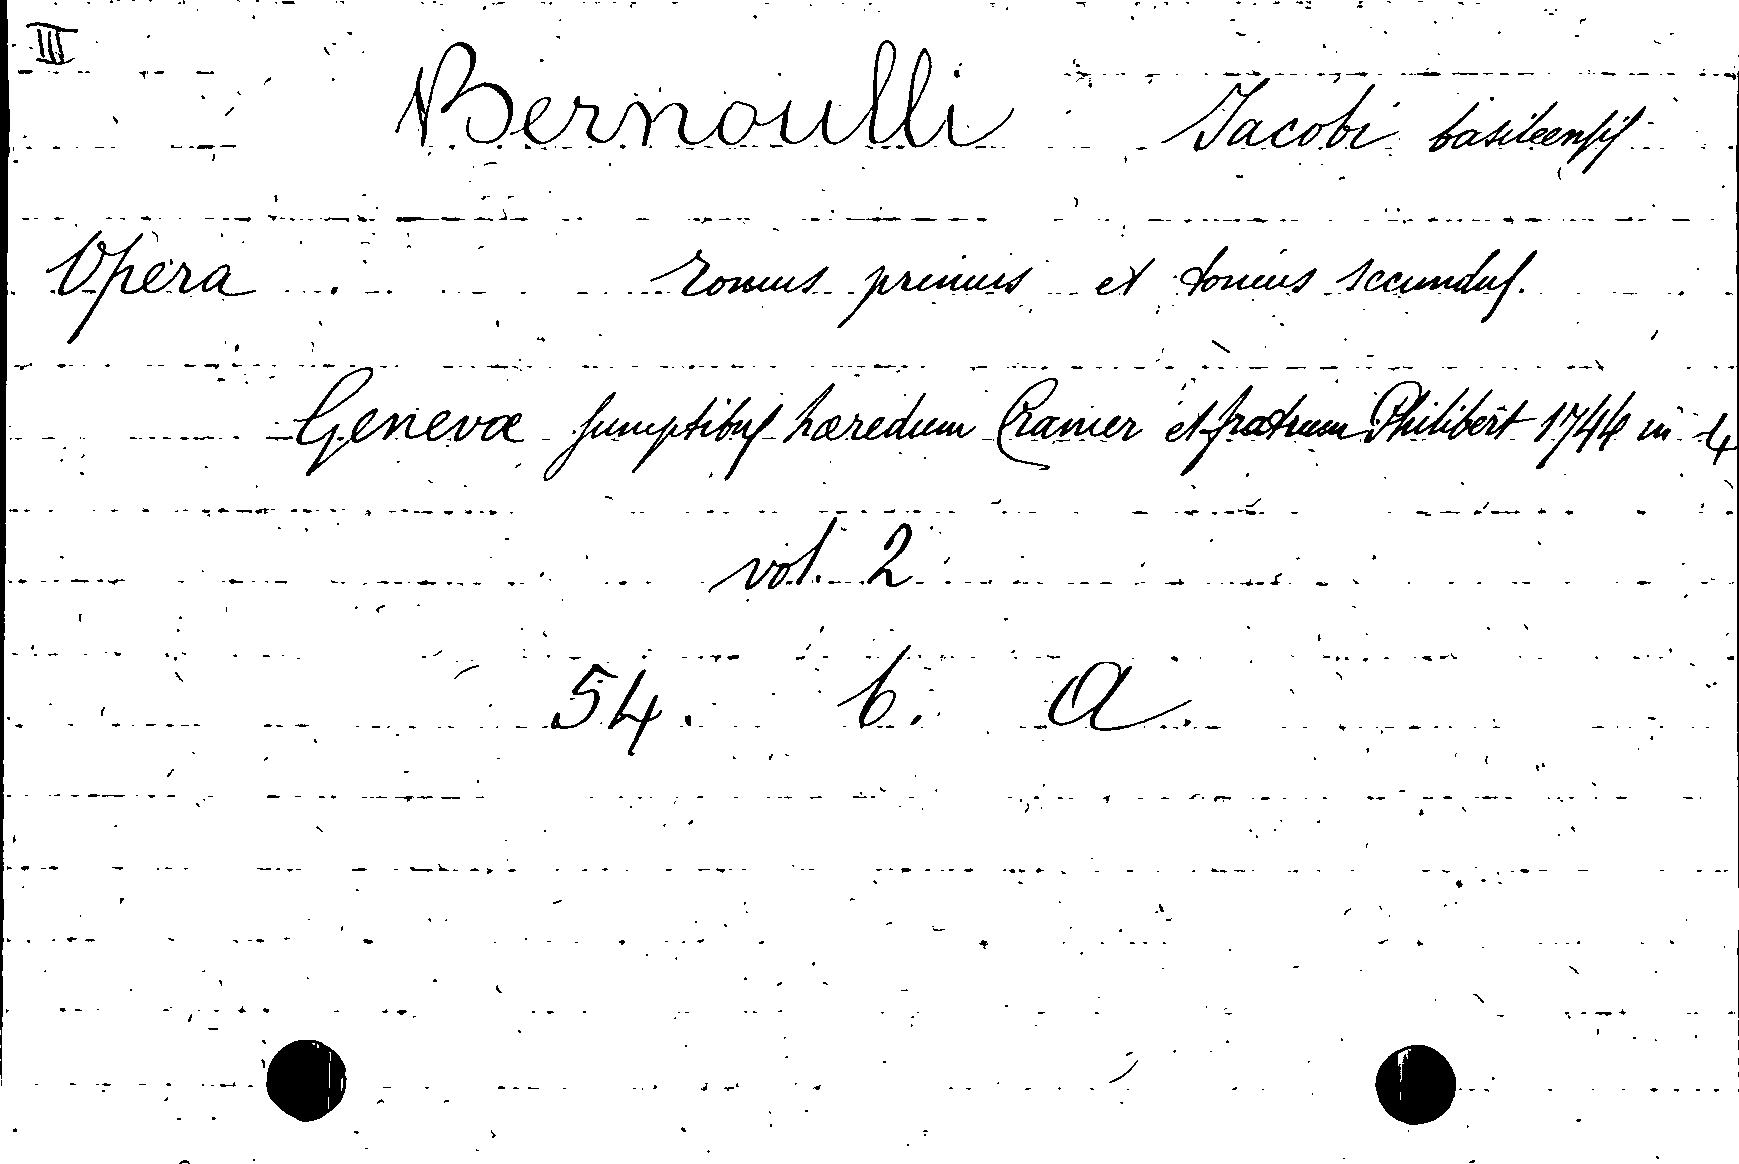 III
Bernoulli Jacobi basileensis
Opera tomus primus et tomus secundus.
Genevæ sumptibus hæredum Cramer et fratrum Philibert 1744 in 4
vol. 2
54. b. a.